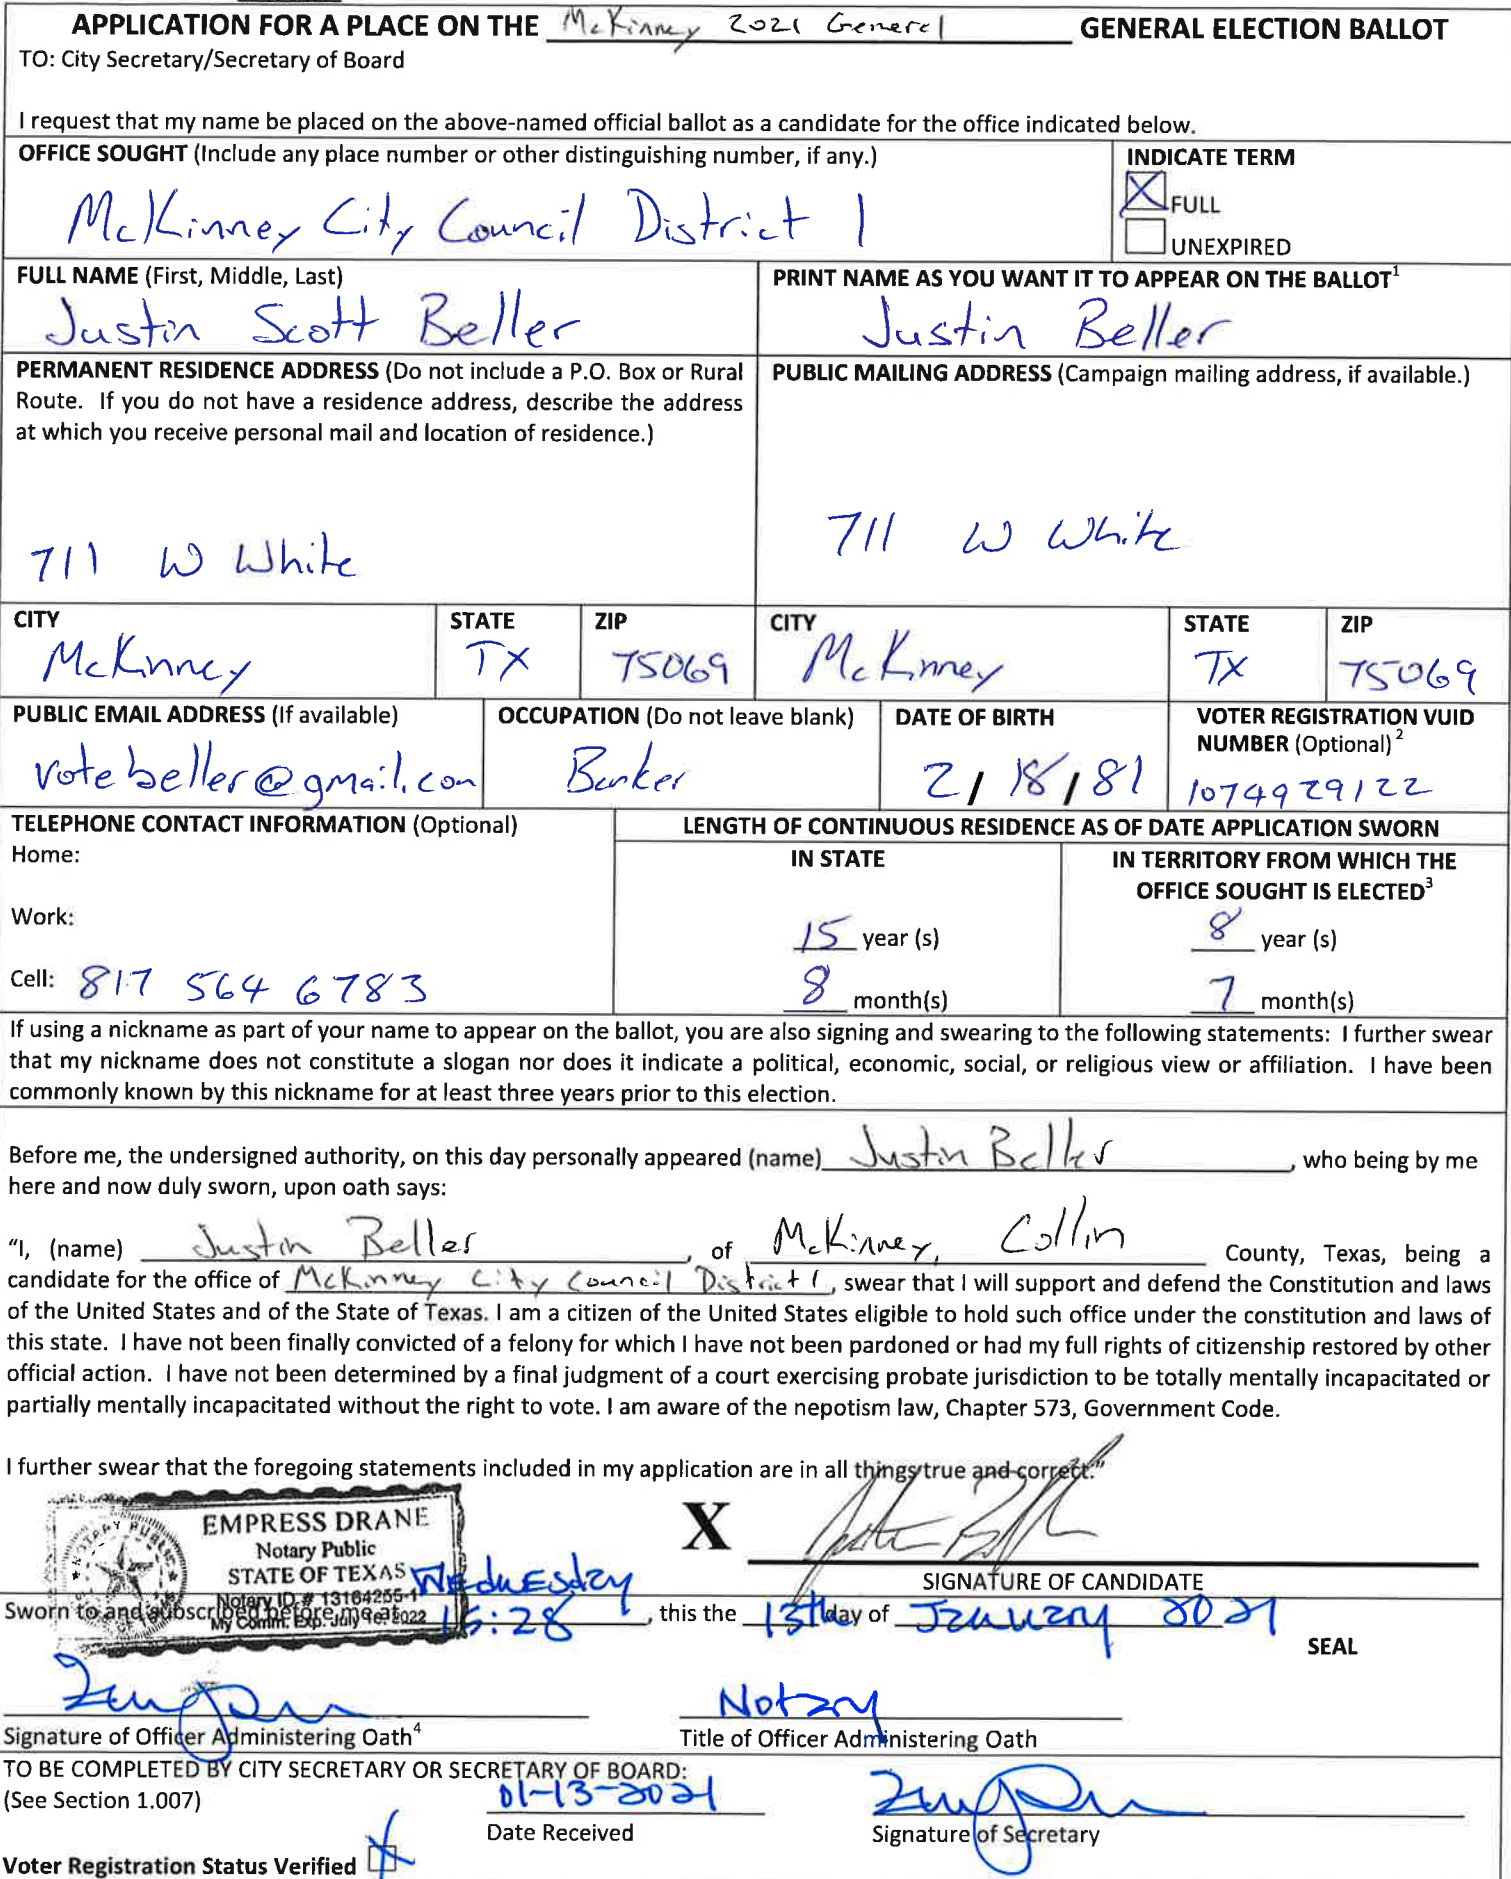 APPLICATION FOR A PLACE ON THE McKinney 2021 General GENERAL ELECTION BALLOT
TO: City Secretary/Secretary of Board
I request that my name be placed on the above-named official ballot as a candidate for the office indicated below.
OFFICE SOUGHT (Include any place number or other distinguishing number, if any.)
McKinney City Council District 1
INDICATE TERM
FULL
UNEXPIRED
FULL NAME (First, Middle, Last)
Justin Scott Beller
PRINT NAME AS YOU WANT IT TO APPEAR ON THE BALLOT1
Justin Beller
PERMANENT RESIDENCE ADDRESS (Do not include a P.O. Box or Rural
Route. If you do not have a residence address, describe the address
at which you receive personal mail and location of residence.)
711 W White
PUBLIC MAILING ADDRESS (Campaign mailing address, if available.)
711 W White
CITY
McKinney
STATE
TX
ZIP
75069
CITY
McKinney
STATE
TX
ZIP
75069
PUBLIC EMAIL ADDRESS (If available)
votebeller@gmail.com
OCCUPATION (Do not leave blank)
Banker
DATE OF BIRTH
2/18/81
VOTER REGISTRATION VUID
NUMBER (Optional)2
1074929122
TELEPHONE CONTACT INFORMATION (Optional)
Home:
Work:
Cell: 817 564 6783
LENGTH OF CONTINUOUS RESIDENCE AS OF DATE APPLICATION SWORN
IN STATE
15 year (s)
8 month(s)
IN TERRITORY FROM WHICH THE
OFFICE SOUGHT IS ELECTED3
8 year (s)
7 month(s)
If using a nickname as part of your name to appear on the ballot, you are also signing and swearing to the following statements: I further swear
that my nickname does not constitute a slogan nor does it indicate a political, economic, social, or religious view or affiliation. I have been
commonly known by this nickname for at least three years prior to this election.
Before me, the undersigned authority, on this day personally appeared (name) Justin Beller, who being by me
here and now duly sworn, upon oath says:
"I, (name) Justin Beller, of McKinney, Collin County, Texas, being a
candidate for the office of McKinney City Council District 1, swear that I will support and defend the Constitution and laws
of the United States and of the State of Texas. I am a citizen of the United States eligible to hold such office under the constitution and laws of
this state. I have not been finally convicted of a felony for which I have not been pardoned or had my full rights of citizenship restored by other
official action. I have not been determined by a final judgment of a court exercising probate jurisdiction to be totally mentally incapacitated or
partially mentally incapacitated without the right to vote. I am aware of the nepotism law, Chapter 573, Government Code.
I further swear that the foregoing statements included in my application are in all things true and correct."
EMPRESS DRANE
Notary Public
STATE OF TEXAS
Notary ID # 13164255-1
My Comm. Exp. July 2022
X
SIGNATURE OF CANDIDATE
Wednesday
Sworn to and subscribed before me at 15:28, this the 13th day of January 2021
SEAL
Signature of Officer Administering Oath4
Notary
Title of Officer Administering Oath
TO BE COMPLETED BY CITY SECRETARY OR SECRETARY OF BOARD:
(See Section 1.007)
01-13-2021
Date Received
Signature of Secretary
Voter Registration Status Verified